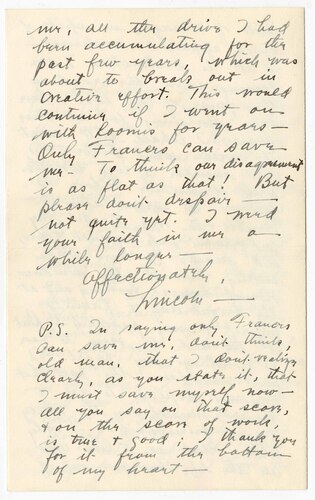 me, all the drive I had
been accumulating for the
past few years, which was
about to break out in
creative effort. This would
continue if I went on
with Rooms for years —
Only Frances can save
me — To think our disagreement
is as flat as that! But
please don't despair —
not quite yet. I need
your faith in me a
while longer —
Affectionately,
Lincoln —
P.S. In saying only Frances
can save me, don't think,
old man, that I don't realize
clearly, as you state it, that
I must save myself now —
all you say on that score,
& on the score of work,
is true & good; I thank you
for it from the bottom
of my heart —